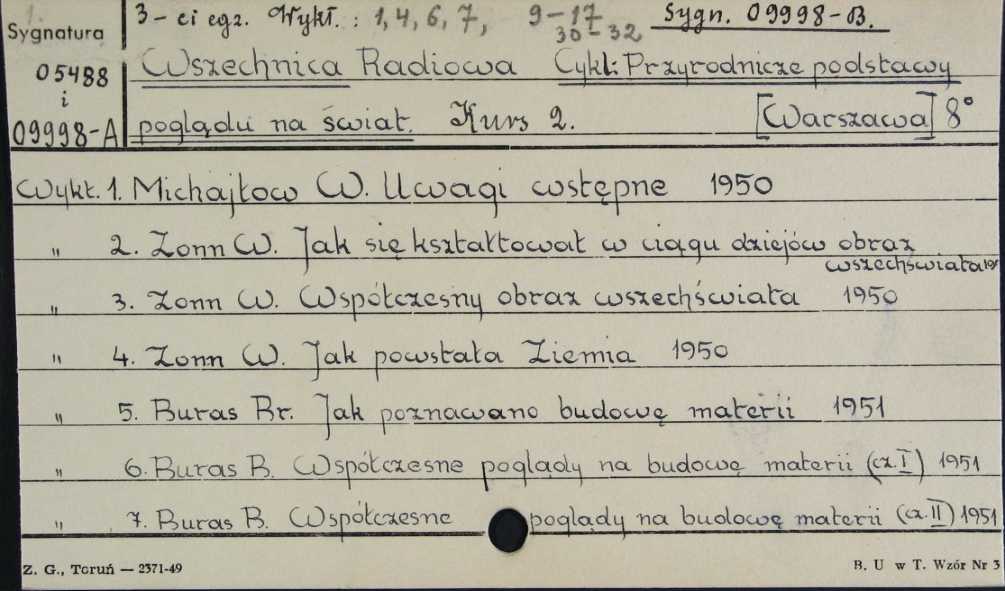 3-ci egz. Wykł.: 1, 4, 6, 7, 9-17 Sygn. 09998-B.
30-32
Sygnatura
05488 Wszechnica Radiowa Cykl: Przyrodnicze podstawy
i
09998-A poglądu na świat. Kurs 2. [Warszawa] 8°
Wykł. 1. Michajłow W. Uwagi wstępne 1950
" 2. Zonn W. Jak się kształtował w ciągu dziejów obraz
wszechświata
" 3. Zonn W. Współczesny obraz wszechświata 1950
" 4. Zonn W. Jak powstała Ziemia 1950
" 5. Buras Br. Jak poznawano budowę materii 1951
" 6. Buras B. Współczesne poglądy na budowę materii (cz. I) 1951
" 7. Buras B. Współczesne poglądy na budowę materii (cz. II) 1951
Z. G., Toruń — 2371-49 B. U w T. Wzór Nr 3